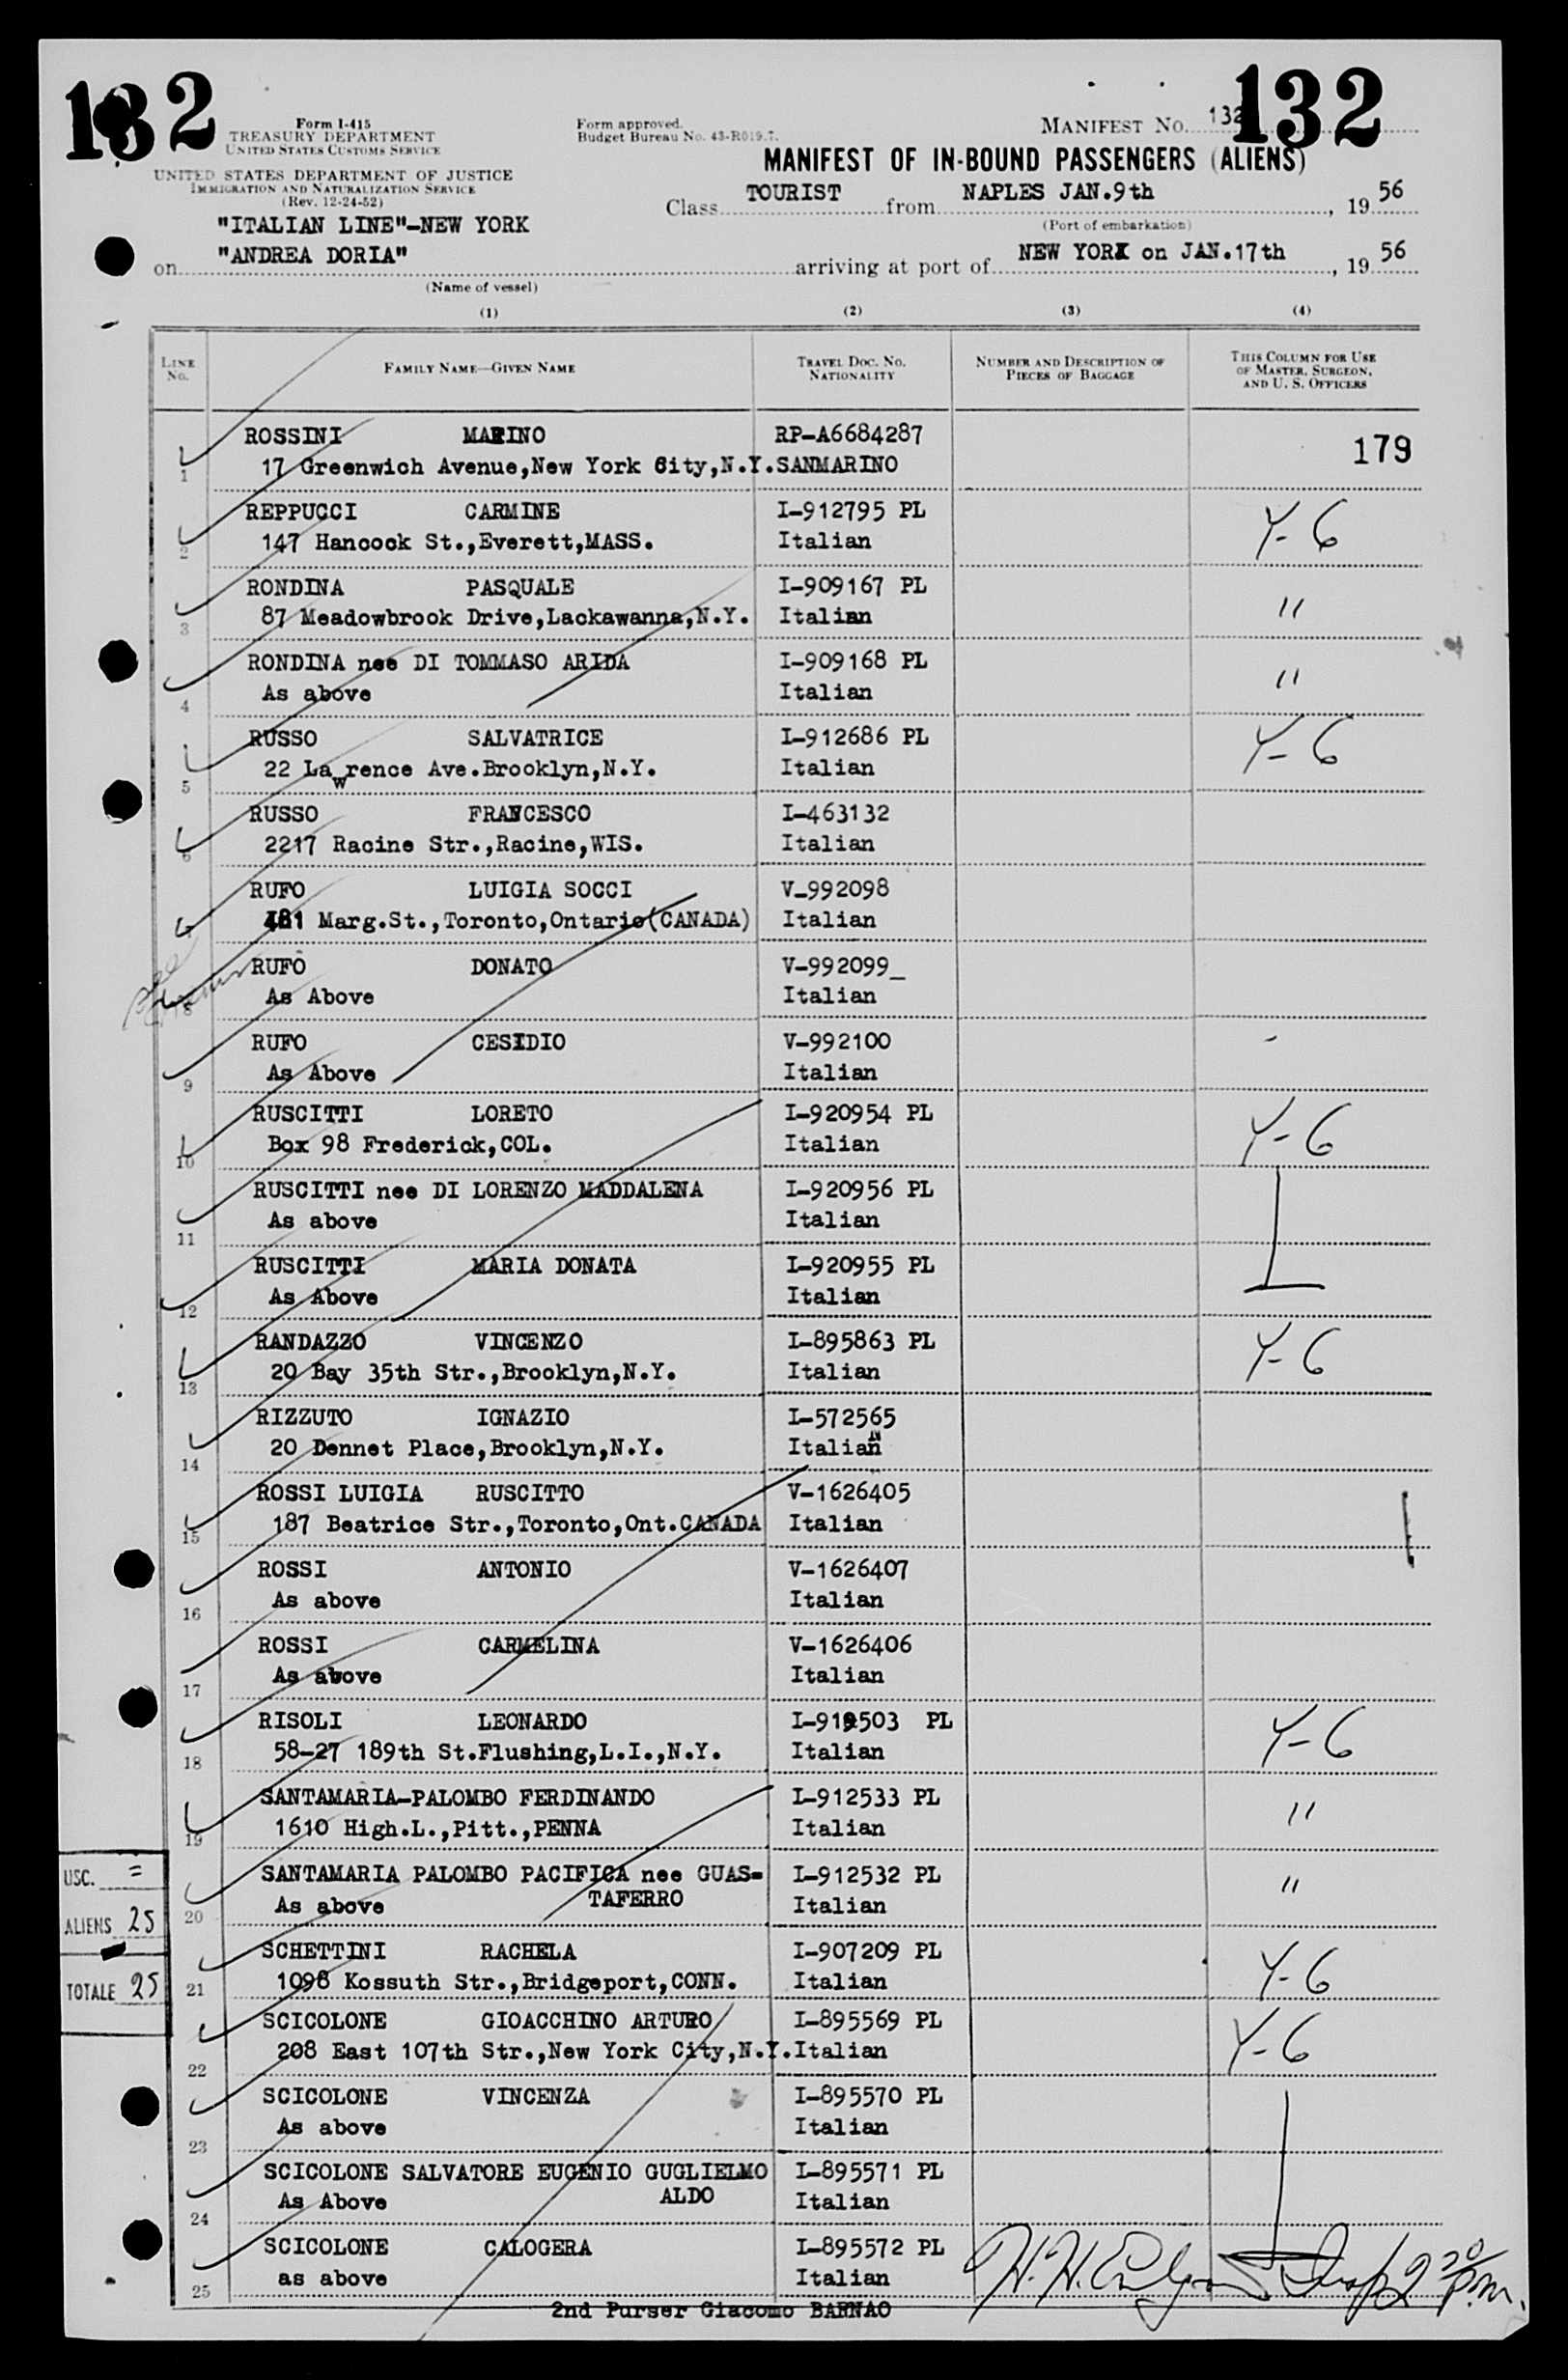 132
132
Form I-415
TREASURY DEPARTMENT
UNITED STATES CUSTOMS SERVICE
Form approved.
Budget Bureau No. 43-R019.7.
MANIFEST NO. 132
UNITED STATES DEPARTMENT OF JUSTICE
IMMIGRATION AND NATURALIZATION SERVICE
(Rev. 12-24-52)
MANIFEST OF IN-BOUND PASSENGERS (ALIENS)
Class TOURIST from NAPLES JAN.9th, 19 56
(Port of embarkation)
"ITALIAN LINE"-NEW YORK
on "ANDREA DORIA" arriving at port of NEW YORK on JAN.17th, 19 56
(Name of vessel)
(1) (2) (3) (4)
LINE NO. FAMILY NAME—GIVEN NAME TRAVEL DOC. NO. NATIONALITY NUMBER AND DESCRIPTION OF PIECES OF BAGGAGE THIS COLUMN FOR USE OF MASTER, SURGEON, AND U. S. OFFICERS
ROSSINI MARINO RP-A6684287 179
1 17 Greenwich Avenue,New York City,N.Y. SANMARINO
REPPUCCI CARMINE I-912795 PL Y-6
2 147 Hancock St.,Everett,MASS. Italian
RONDINA PASQUALE I-909167 PL "
3 87 Meadowbrook Drive,Lackawanna,N.Y. Italian
RONDINA nee DI TOMMASO ARIDA I-909168 PL "
4 As above Italian
RUSSO SALVATRICE I-912686 PL Y-6
5 22 Lawrence Ave.Brooklyn,N.Y. Italian
RUSSO FRANCESCO I-463132
6 2217 Racine Str.,Racine,WIS. Italian
RUFO LUIGIA SOCCI V-992098
Marg.St.,Toronto,Ontario(CANADA) Italian
RUFO DONATO V-992099_
8 As Above Italian
RUFO CESIDIO V-992100 -
9 As Above Italian
RUSCITTI LORETO I-920954 PL Y-6
10 Box 98 Frederick,COL. Italian
RUSCITTI nee DI LORENZO MADDALENA I-920956 PL
11 As above Italian
RUSCITTI MARIA DONATA I-920955 PL
12 As Above Italian
RANDAZZO VINCENZO I-895863 PL Y-6
13 20 Bay 35th Str.,Brooklyn,N.Y. Italian
RIZZUTO IGNAZIO I-572565
14 20 Dennet Place,Brooklyn,N.Y. Italian
ROSSI LUIGIA RUSCITTO V-1626405
15 187 Beatrice Str.,Toronto,Ont.CANADA Italian
ROSSI ANTONIO V-1626407
16 As above Italian
ROSSI CARMELINA V-1626406
17 As above Italian
RISOLI LEONARDO PL Y-6
18 58-27 189th St.Flushing,L.I.,N.Y. Italian
SANTAMARIA-PALOMBO FERDINANDO I-912533 PL "
19 1610 High.L.,Pitt.,PENNA Italian
SANTAMARIA PALOMBO PACIFICA nee GUAS= I-912532 PL "
20 As above TAFERRO Italian
SCHETTINI RACHELA I-907209 PL Y-6
21 1098 Kossuth Str.,Bridgeport,CONN. Italian
SCICOLONE GIOACCHINO ARTURO I-895569 PL Y-6
22 208 East 107th Str.,New York City,N.Y. Italian
SCICOLONE VINCENZA I-895570 PL
23 As above Italian
SCICOLONE SALVATORE EUGENIO GUGLIELMO I-895571 PL
24 As Above ALDO Italian
SCICOLONE CALOGERA I-895572 PL
25 as above Italian
2nd Purser Giacomo BARNAO
USC. =
ALIENS 25
TOTALE 25
H.H. Insp 2 30 p.m.